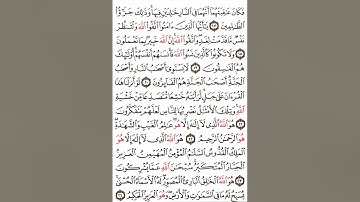 فَكَانَ عَٰقِبَتَهُمَآ أَنَّهُمَا فِي ٱلنَّارِ خَٰلِدَيْنِ فِيهَا وَذَٰلِكَ جَزَٰٓؤُاْ
ٱلظَّٰلِمِينَ ١٧ يَٰٓأَيُّهَا ٱلَّذِينَ ءَامَنُواْ ٱتَّقُواْ ٱللَّهَ وَلْتَنظُرْ
نَفْسٌ مَّا قَدَّمَتْ لِغَدٍ وَٱتَّقُواْ ٱللَّهَ إِنَّ ٱللَّهَ خَبِيرٌۢ بِمَا تَعْمَلُونَ
١٨ وَلَا تَكُونُواْ كَٱلَّذِينَ نَسُواْ ٱللَّهَ فَأَنسَىٰهُمْ أَنفُسَهُمْ أُوْلَٰٓئِكَ
هُمُ ٱلْفَٰسِقُونَ ١٩ لَا يَسْتَوِيٓ أَصْحَٰبُ ٱلنَّارِ وَأَصْحَٰبُ
ٱلْجَنَّةِ أَصْحَٰبُ ٱلْجَنَّةِ هُمُ ٱلْفَآئِزُونَ ٢٠ لَوْ أَنزَلْنَا هَٰذَا
ٱلْقُرْءَانَ عَلَىٰ جَبَلٍ لَّرَأَيْتَهُۥ خَٰشِعًا مُّتَصَدِّعًا مِّنْ خَشْيَةِ
ٱللَّهِ وَتِلْكَ ٱلْأَمْثَٰلُ نَضْرِبُهَا لِلنَّاسِ لَعَلَّهُمْ يَتَفَكَّرُونَ
٢١ هُوَ ٱللَّهُ ٱلَّذِي لَآ إِلَٰهَ إِلَّا هُوَ عَٰلِمُ ٱلْغَيْبِ وَٱلشَّهَٰدَةِ
هُوَ ٱلرَّحْمَٰنُ ٱلرَّحِيمُ ٢٢ هُوَ ٱللَّهُ ٱلَّذِي لَآ إِلَٰهَ إِلَّا هُوَ
ٱلْمَلِكُ ٱلْقُدُّوسُ ٱلسَّلَٰمُ ٱلْمُؤْمِنُ ٱلْمُهَيْمِنُ ٱلْعَزِيزُ
ٱلْجَبَّارُ ٱلْمُتَكَبِّرُ سُبْحَٰنَ ٱللَّهِ عَمَّا يُشْرِكُونَ
٢٣ هُوَ ٱللَّهُ ٱلْخَٰلِقُ ٱلْبَارِئُ ٱلْمُصَوِّرُ لَهُ ٱلْأَسْمَآءُ ٱلْحُسْنَىٰ
يُسَبِّحُ لَهُۥ مَا فِي ٱلسَّمَٰوَٰتِ وَٱلْأَرْضِ وَهُوَ ٱلْعَزِيزُ ٱلْحَكِيمُ ٢٤